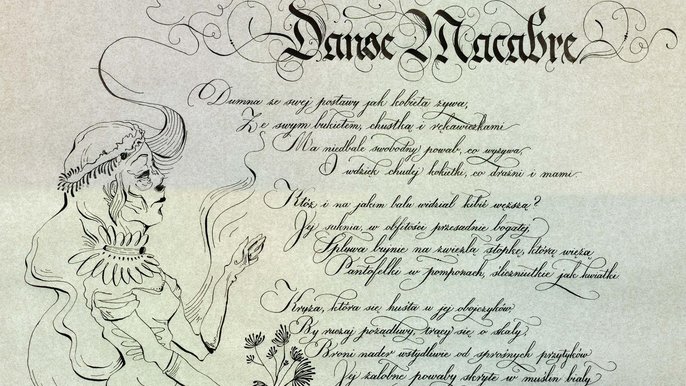 Danse Macabre
Dumna ze swej postawy jak kobieta żywa,
Ze swym bukietem, chustką i rękawiczkami
Ma niedbale swobodny powab, co wyzywa,
I wdzięk chudy kokietki, co drażni i mami.
Któż i na jakim balu widział kibić węższą?
Jej suknia, w obfitości przesadnie bogatej,
Spływa bujnie na zwięzłą stopkę, którą więżą
Pantofelki w pomponach, śliczniutkie jak kwiatki.
Kryza, która się huśta u jej obojczyków
By ruczaj pożądliwy, trący się o skały,
Broni nader wstydliwie od sprośnych przytyków
Jej żałobne powaby skryte w muślin biały